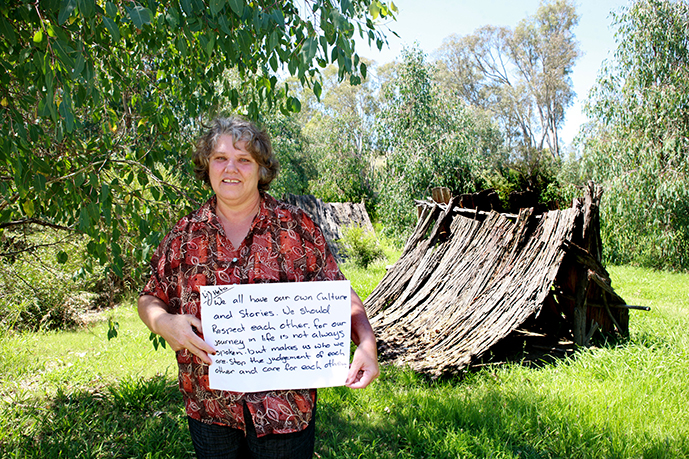 We all have our own Culture
and Stories. We should
Respect each other. for our
journey in life is not always
spoken. but makes us who we
are. Stop the judgement of each
other and care for each other.